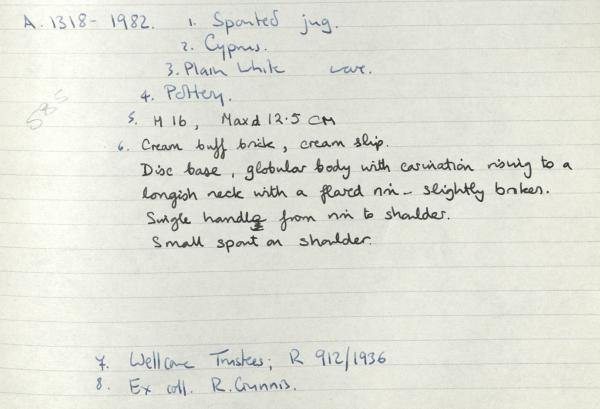 A. 1318 - 1982. 1. Spouted jug.
2. Cyprus.
3. Plain White ware.
4. Pottery.
585
5. H 16, Max d 12.5 CM
6. Cream buff brick, cream slip.
Disc base, globular body with carination rising to a
longish neck with a flared rim - slightly broken.
Single handle from rim to shoulder.
Small spout on shoulder.
7. Wellcome Trustees; R 912/1936
8. Ex coll. R. Gunnis.